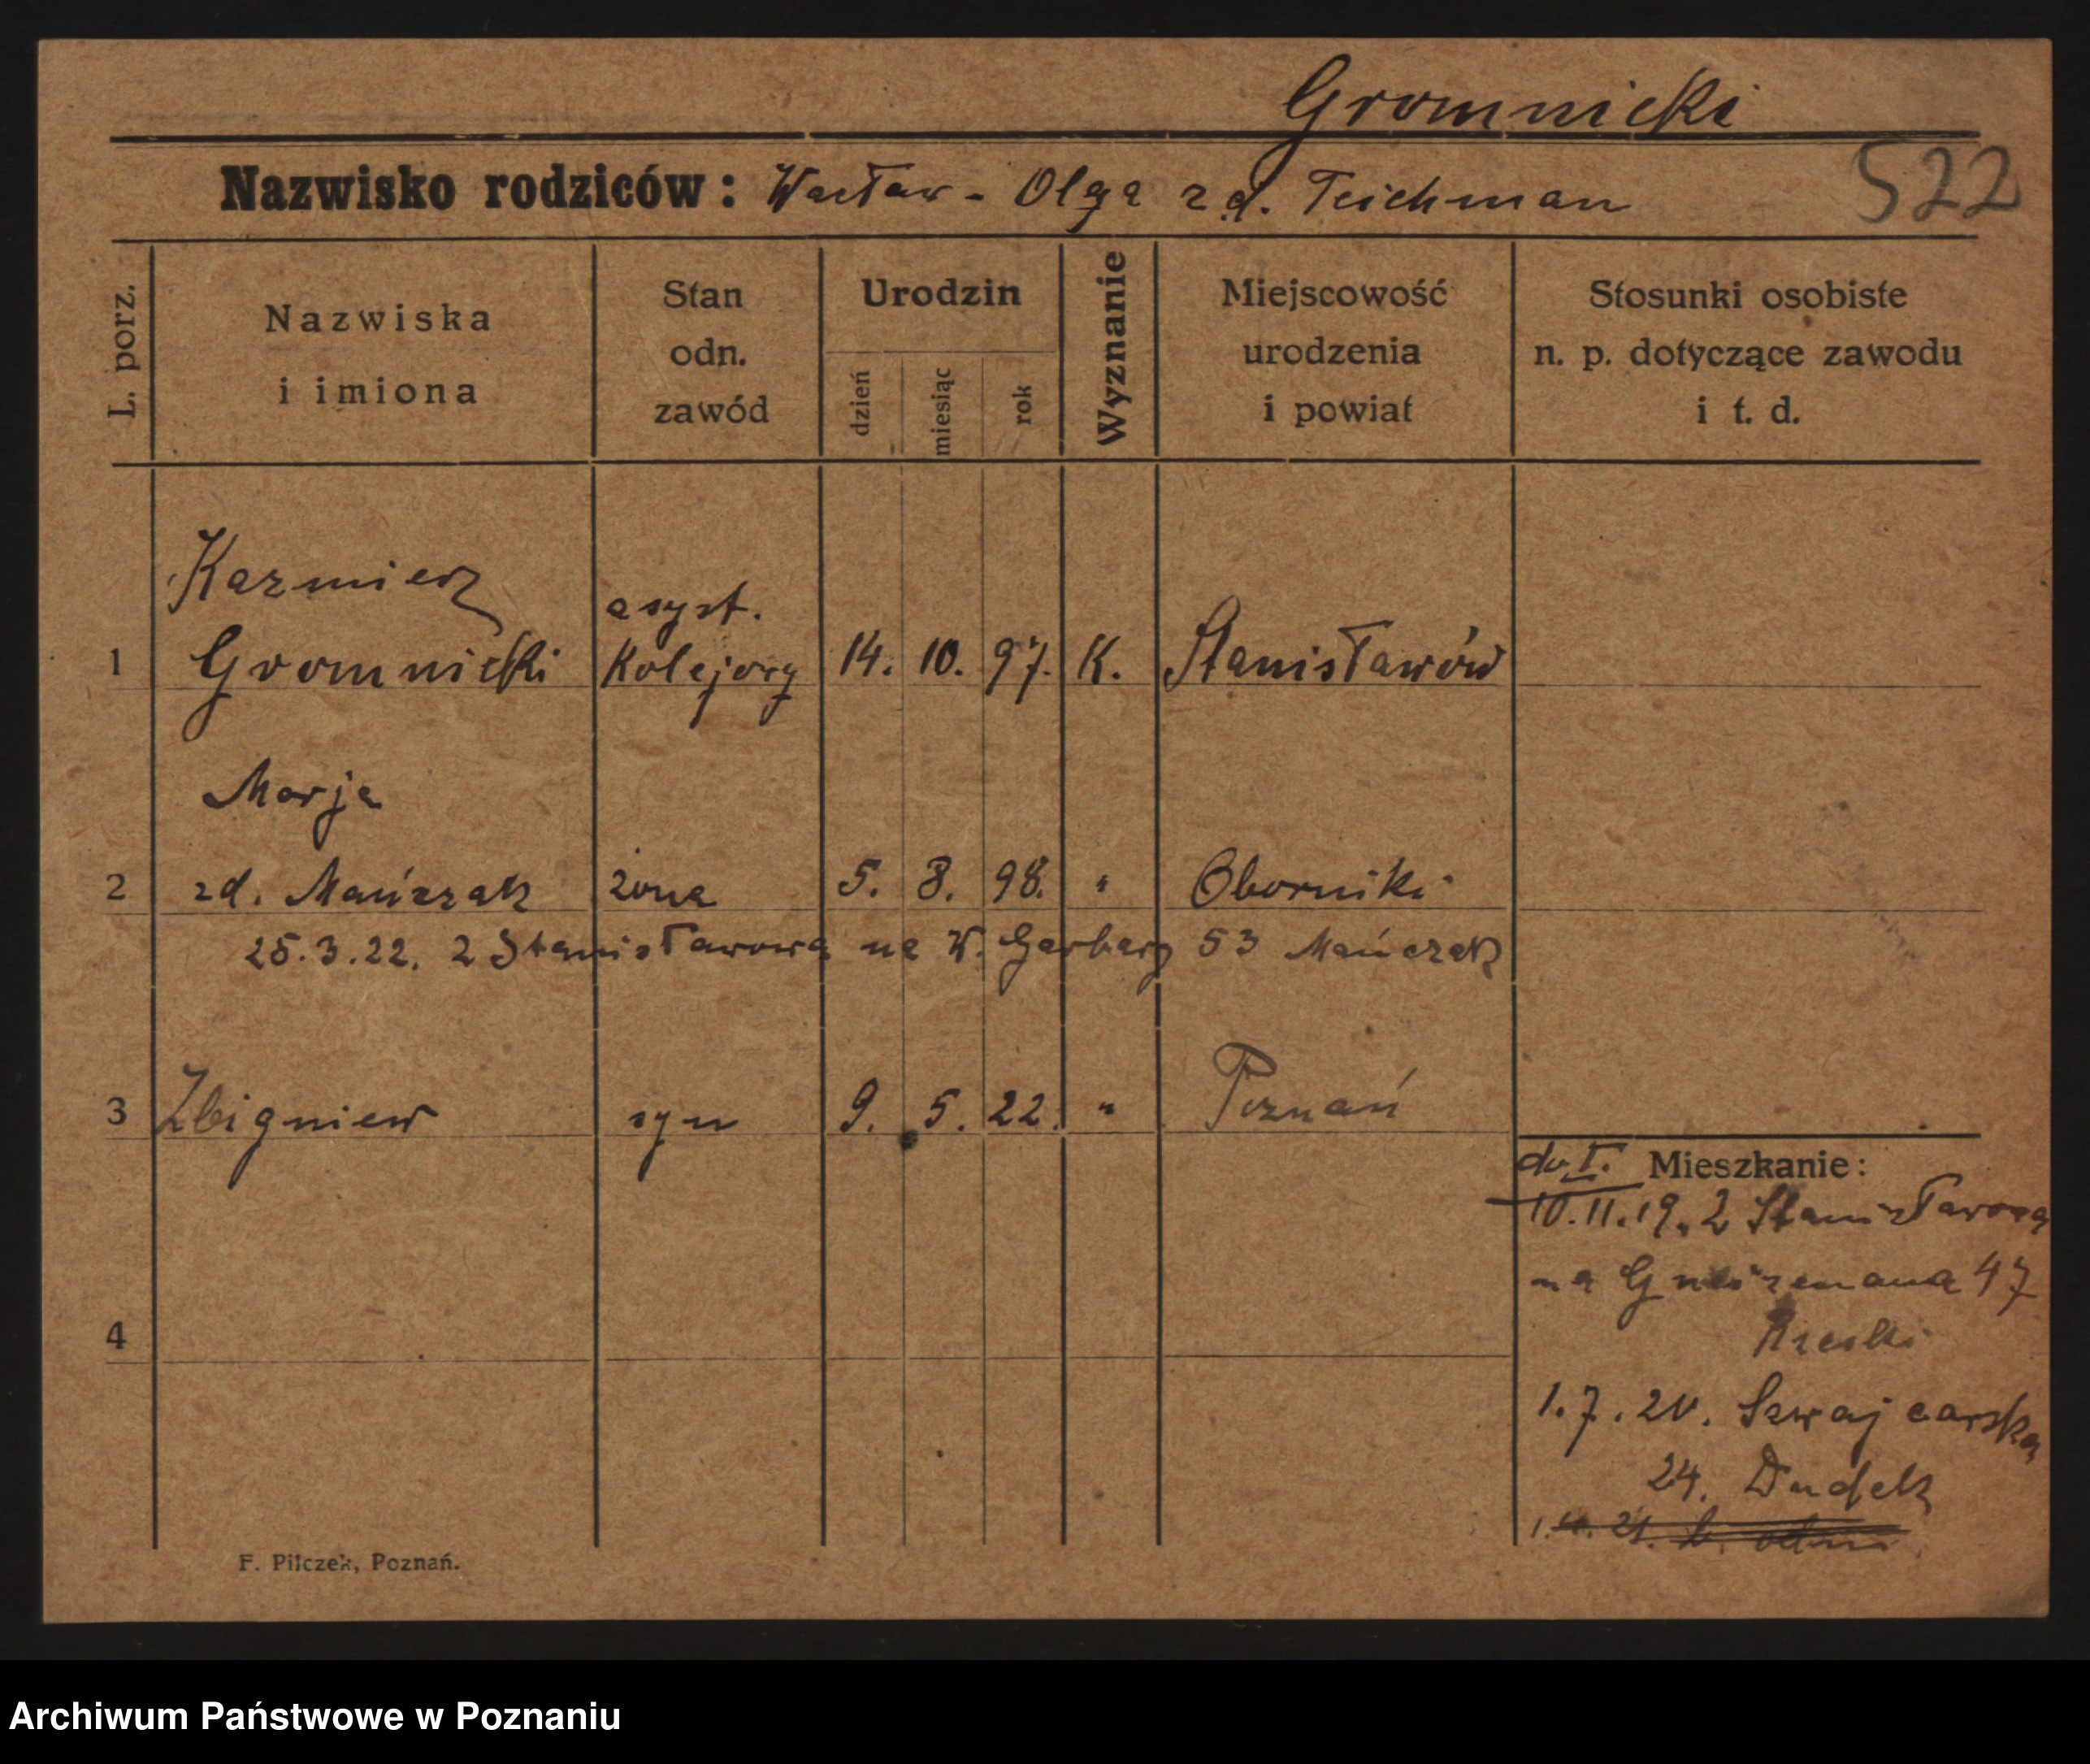 Gromnicki
Nazwisko rodziców: Wacław - Olga zd. Teichman
522
L. porz.
Nazwiska
i imiona
Stan
odn.
zawód
Urodzin
dzień
miesiąc
rok
Wyznanie
Miejscowość
urodzenia
i powiat
Stosunki osobiste
n. p. dotyczące zawodu
i t. d.
Kazmierz
asyst.
1 Gromnicki Kolejowy 14. 10. 97. K. Stanisławów
Marja
2 zd. Mańczak żona 5. 8. 98. " Oborniki
25.3.22. z Stanisławowa na W. Garbary 53 Mańczak
3 Zbigniew syn 9. 5. 22. " Poznań
do I. Mieszkanie:
10.11.19. z Stanisławowa
na 47
1.7.20. Szwajcarska
24. Dudek
4
F. Pilczek, Poznań.
Archiwum Państwowe w Poznaniu